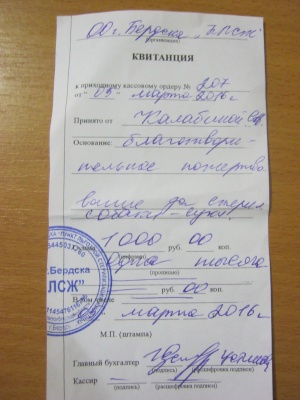 ОО г. Бердска "ПСЖ"
(организация)
КВИТАНЦИЯ
к приходному кассовому ордеру № 207
от "09" марта 2016 г
Принято от Калабиной
Основание: благотвори-
тельное пожертво
вание для стерил
собаки-суки
Сумма 1000 руб. 00 коп.
(цифрами)
Одна тысяча
(прописью)
руб. 00 коп.
В том числе
марта 2016 г
М.П. (штампа)
Главный бухгалтер
(подпись) (расшифровка подписи)
Кассир
(подпись) (расшифровка подписи)
г.Бердска
ЛСЖ"